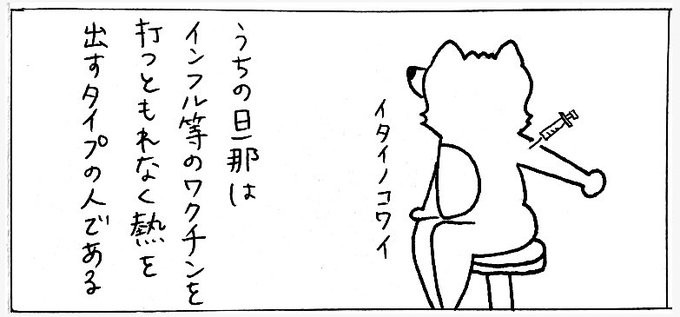 うちの旦那は
インフル等のワクチンを
打つともれなく熱を
出すタイプの人である
イタイノコワイ